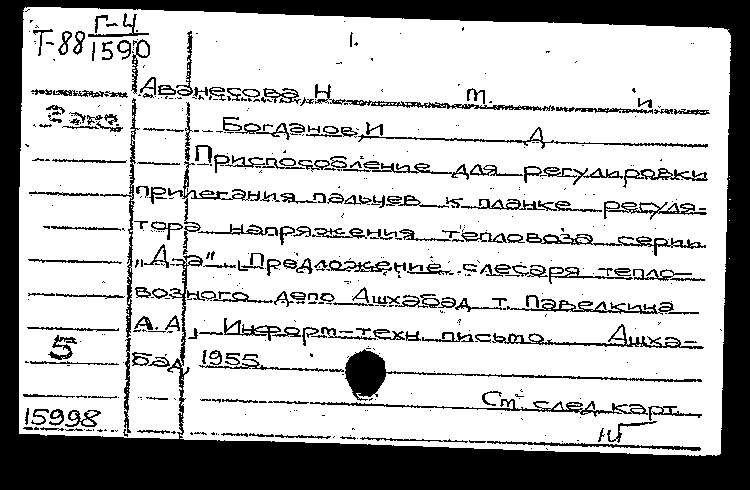 Т-88 Г-4/1590
1.
Аванесова, Н т. и
2 экз.
Богданов, И Д
Приспособление для регулировки
прилегания пальцев к планке регуля-
тора напряжения тепловоза серии
„Д-а". Предложение слесаря тепло-
возного депо Ашхабад т. Павелкина
А. А. Информ-техн. письмо. Ашха-
5 бад, 1955.
См след. карт.
15998